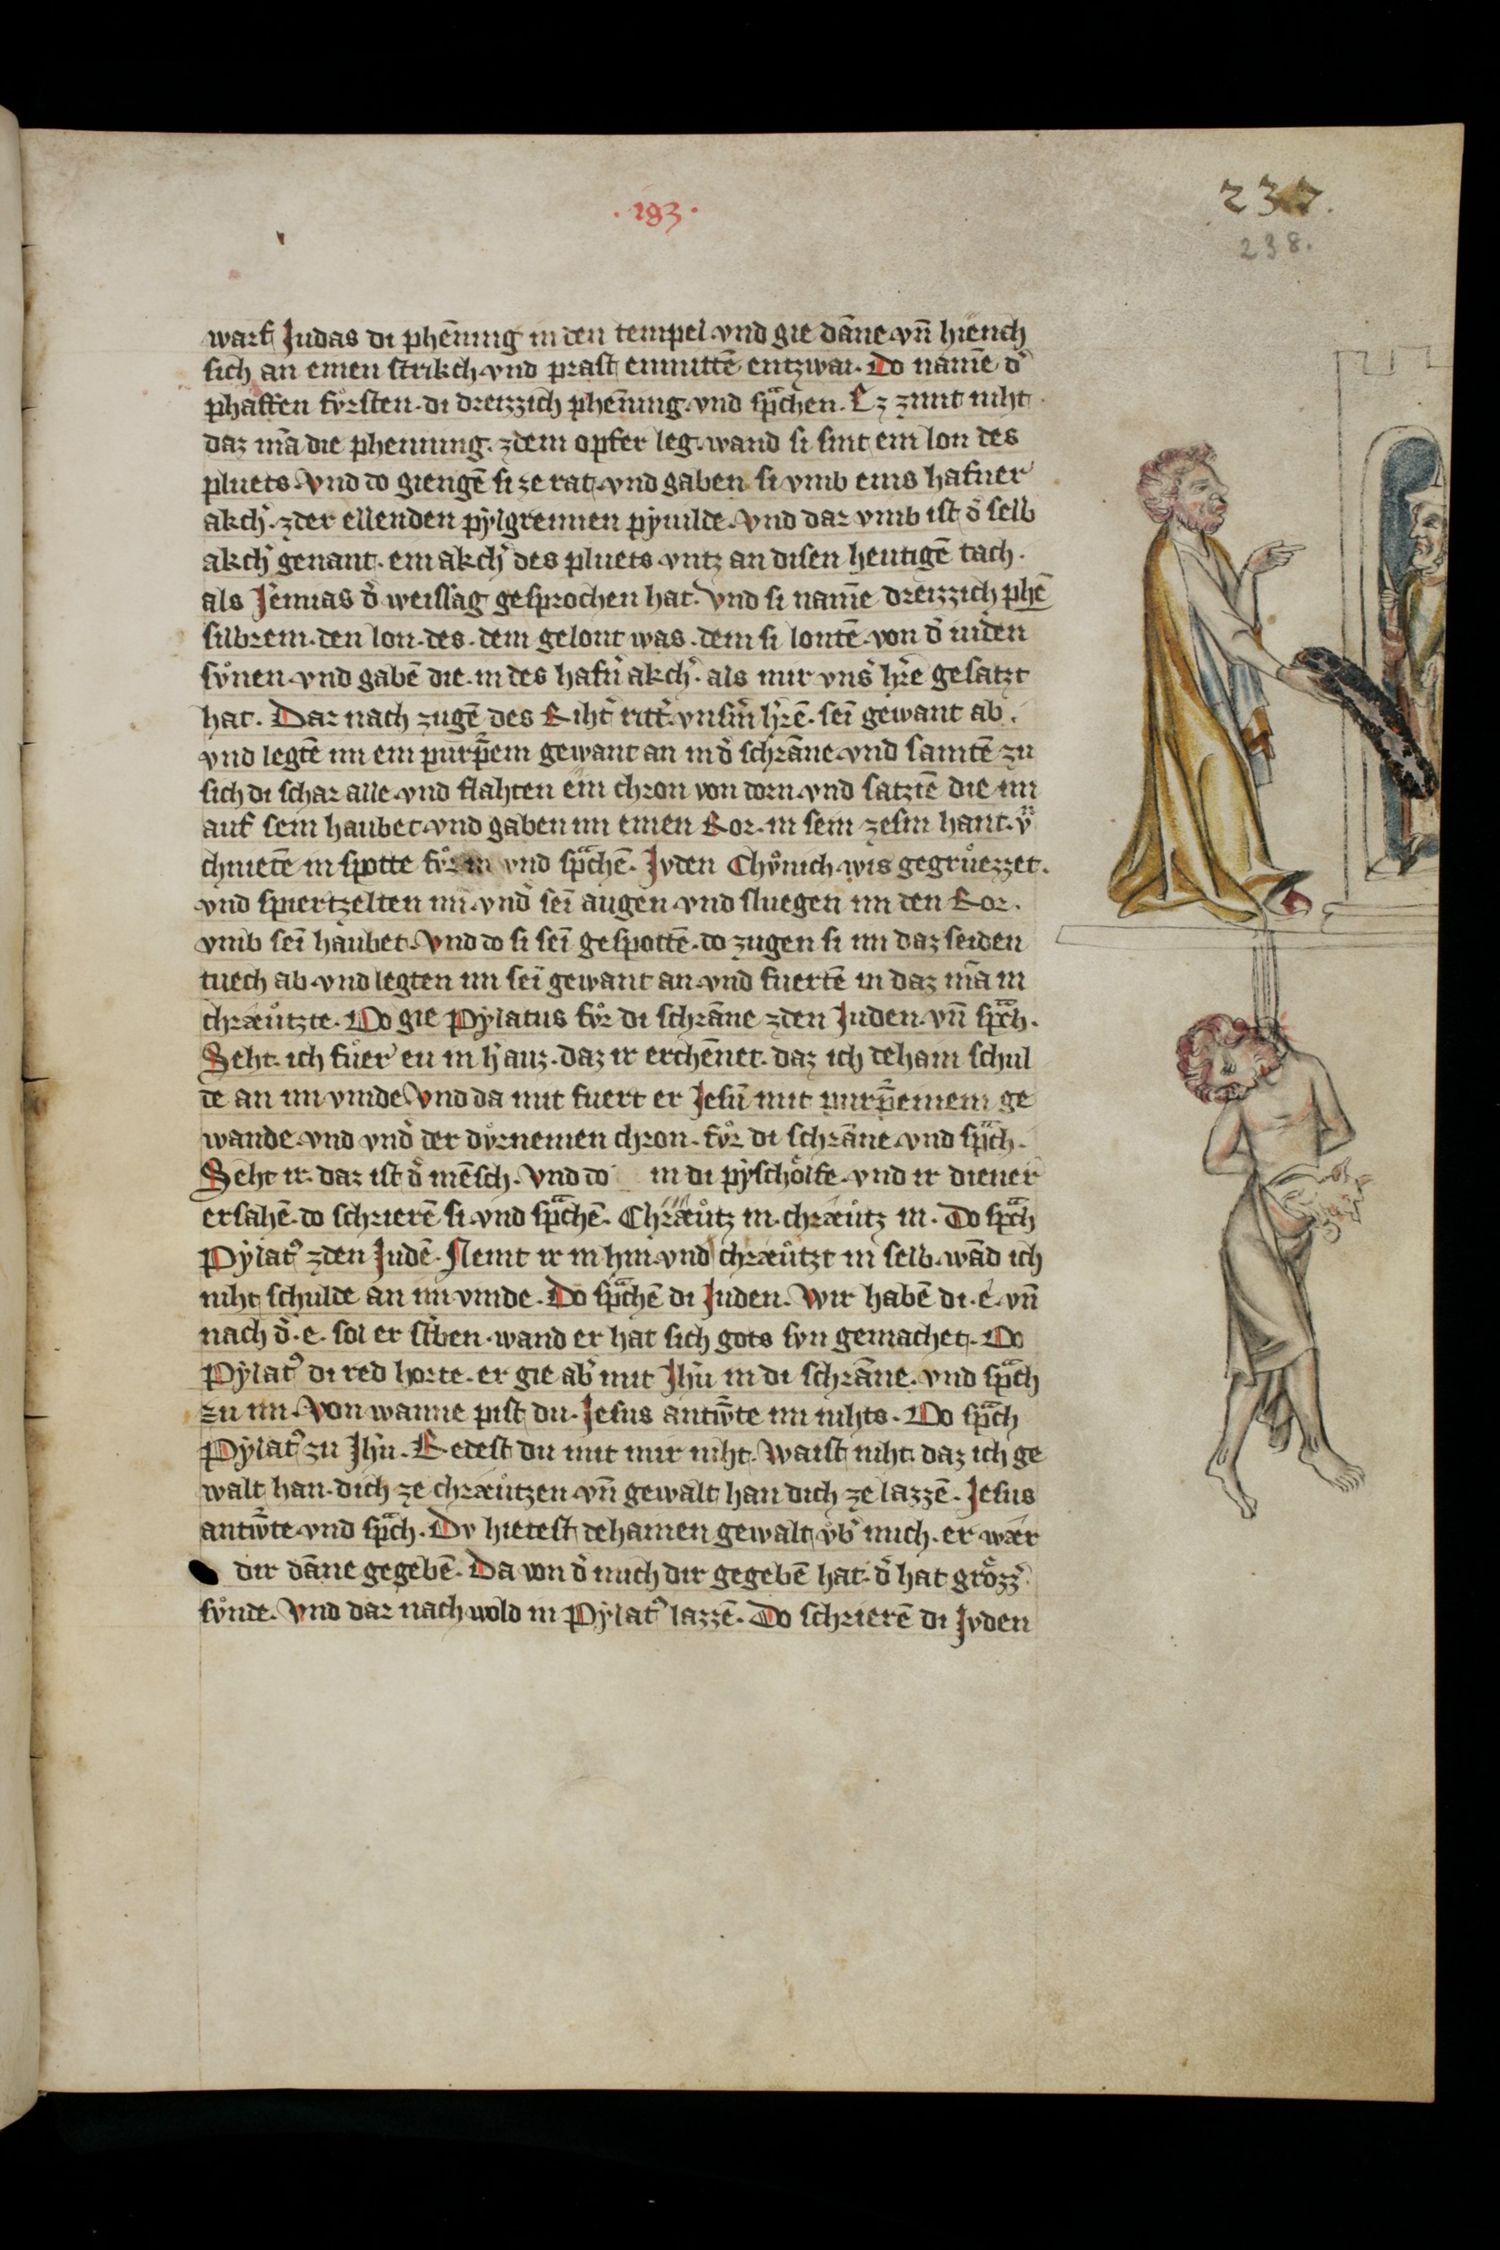 · 193 ·
237.
238.
warf Judas di phēning in den tempel · vnd gie dāne · vn̄ hiench
sich an einen strikch · vnd prast enmittē entzwai · Do namē d̾
phaffen fvͦrsten · di dreizzich phēning · vnd sprͣchen · Ez zimt niht
daz mā die phenning · zdem opfer leg · wand si sint ein lon des
pluets · Vnd do giengē si ze rat · vnd gaben si vmb eins hafner
akch̾ · zder ellenden pylgreimen pyuilde · Vnd dar vmb ist d̾ selb
akch̾ genant · ein akch̾ des pluets · vntz an disen heutigē tach ·
als Jēmias d̾ weissag gesprochen hat · Vnd si namē dreizzich phē
silbrein · den lon · des · dem gelont was · dem si lontē · von d̾ iuden
svͦnen · vnd gabē die · in des hafn̾ akch̾ · als mir vns̾ hr̄e gesatzt
hat · Dar nach zugē des Riht̾ ritt̾ · vnsm̄ hr̄ē · sei gewant ab ·
vnd legtē im ein purpr̄ein gewant an in d̾ schrāne · vnd samtē zu
sich di schar alle · vnd flahten ein chron von dorn · vnd satztē die im
auf sein haubet · vnd gaben im einen Ror · in sein zesm hant · v̄
chnietē in spotte fvͦr in vnd sprͣchē · Jvden Chvͦnich · wis gegruͤezzet ·
vnd spiertzelten im · vnd̾ sei augen · vnd sluegen im den Ror ·
vmb sei haubet · Vnd do si sei gespottē · do zugen si im daz seiden
tuech ab · vnd legten im sei gewant an · vnd fuertē in daz mā in
chræutzte · Do gie Pylatus fvͦr di schrāne zden Juden · vn̄ sprͣch ·
Seht · ich fuer eu in h̾auz · daz ir erchēnet · daz ich dehain schul
de an im vinde · Vnd da mit fuert er Jesū mit purpr̄einem ge
wande · vnd vnd̾ der dvͦrneinen chron · fvͦr di schrāne · vnd sprͣch ·
Seht ir · daz ist d̾ mēsch · Vnd do in di pyschoͤlfe · vnd ir diener
ersahē · do schrierē si · vnd sprͣchē · Chræutz in · chræutz in · Do sprͣch
Pylatꝰ zden Judē · Nemt ir in hin · vnd chræutzt in selb · wād ich
niht schulde an im vinde · Do sprͣchē di Juden · Wir habē di · e · vn̄
nach d̾ · e · sol er st̾ben · wand er hat sich gots svn gemachet · Do
Pylatꝰ di red horte · er gie ab̾ mit Jhū in di schrāne · vnd sprͣch
zu im · Von wanne pist du · Jesus antwr̄te im nihts · Do sprͣch
Pylatꝰ zu Jhū · Redest du mit mir niht · Waist niht · daz ich ge
walt han · dich ze chræutzen · vn̄ gewalt han dich ze lazzē · Jesus
antwr̄te · vnd sprͣch · Dv hietest dehainen gewalt vͦb̾ mich · er wær
dir dāne gegebē · Da von d̾ mich dir gegebē hat · d̾ hat groͤzz̾
svͦnde · Vnd dar nach wold in Pylatꝰ lazzē · Do schrierē di Jvden